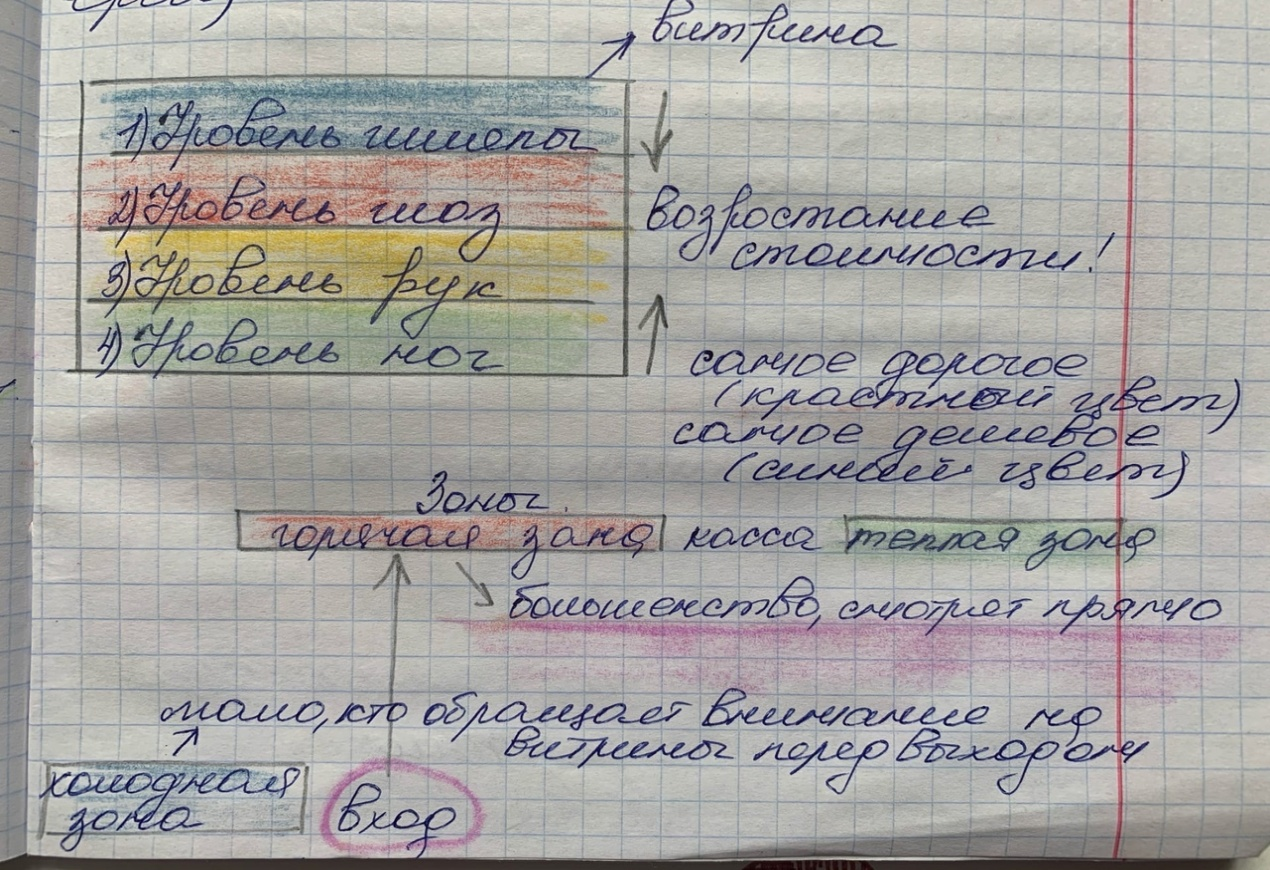 витрина
1) Уровень шляпы
2) Уровень глаз
3) Уровень рук
4) Уровень ног
возростание
стоимости!
самое дорогое
(крастный цвет)
самое дешевое
(синий цвет)
Зоны
горячая зона касса теплая зона
большенство, смотрят прямо
мало, кто обращает внимание на
витрины перед выходом
холодная
зона
вход